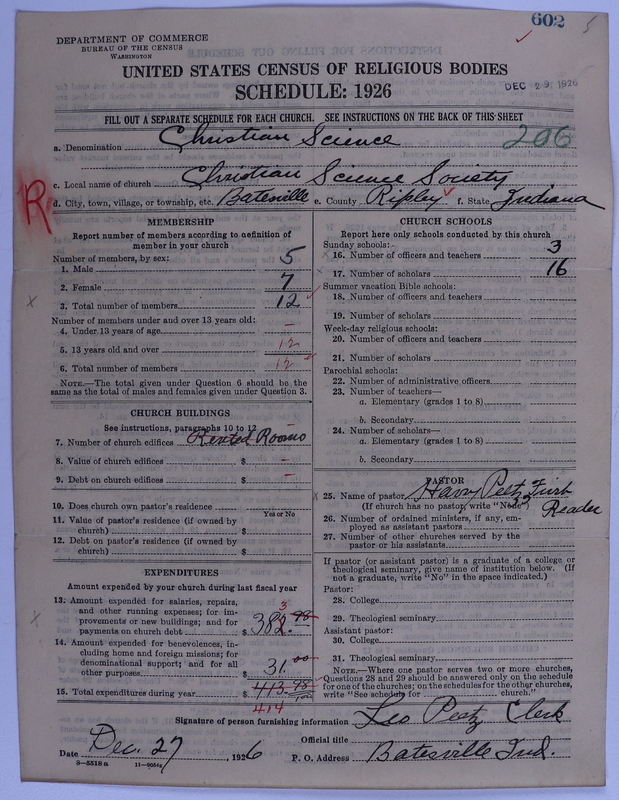 602
5
DEPARTMENT OF COMMERCE
BUREAU OF THE CENSUS
WASHINGTON
UNITED STATES CENSUS OF RELIGIOUS BODIES
DEC 29 1926
SCHEDULE: 1926
FILL OUT A SEPARATE SCHEDULE FOR EACH CHURCH. SEE INSTRUCTIONS ON THE BACK OF THIS SHEET
a. Denomination Christian Science 206
c. Local name of church Christian Science Society
R
d. City, town, village, or township, etc. Batesville e. County Ripley f. State Indiana
MEMBERSHIP
Report number of members according to definition of
member in your church
Number of members, by sex:
1. Male 5
2. Female 7
3. Total number of members 12
Number of members under and over 13 years old:
4. Under 13 years of age –
5. 13 years old and over 12
6. Total number of members 12
NOTE.—The total given under Question 6 should be the
same as the total of males and females given under Question 3.
CHURCH BUILDINGS
See instructions, paragraphs 10 to 12
7. Number of church edifices Rented Rooms –
8. Value of church edifices $ –
9. Debt on church edifices $ –
10. Does church own pastor's residence
Yes or No
11. Value of pastor's residence (if owned by
church) $
12. Debt on pastor's residence (if owned by
church) $
EXPENDITURES
Amount expended by your church during last fiscal year
13. Amount expended for salaries, repairs,
and other running expenses; for im-
provements or new buildings; and for
payments on church debt $ 382.98 3
14. Amount expended for benevolences, in-
cluding home and foreign missions; for
denominational support; and for all
other purposes $ 31.00
15. Total expenditures during year $ 413.98
414
CHURCH SCHOOLS
Report here only schools conducted by this church
Sunday schools:
16. Number of officers and teachers 3
17. Number of scholars 16
Summer vacation Bible schools:
18. Number of officers and teachers
19. Number of scholars
Week-day religious schools:
20. Number of officers and teachers
21. Number of scholars
Parochial schools:
22. Number of administrative officers
23. Number of teachers—
a. Elementary (grades 1 to 8)
b. Secondary
24. Number of scholars—
a. Elementary (grades 1 to 8)
b. Secondary
PASTOR
25. Name of pastor Harry Peetz First
(If church has no pastor, write "None") Reader
26. Number of ordained ministers, if any, em-
ployed as assistant pastors
27. Number of other churches served by the
pastor or his assistants
If pastor (or assistant pastor) is a graduate of a college or
theological seminary, give name of institution below. (If
not a graduate, write "No" in the space indicated.)
Pastor:
28. College
29. Theological seminary
Assistant pastor:
30. College
31. Theological seminary
NOTE.—Where one pastor serves two or more churches,
Questions 28 and 29 should be answered only on the schedule
for one of the churches; on the schedules for the other churches,
write "See schedule for church."
Signature of person furnishing information Leo Peetz Clerk
Official title
Date Dec. 27, 1926 P. O. Address Batesville Ind.
8—5518 a 11—9054a